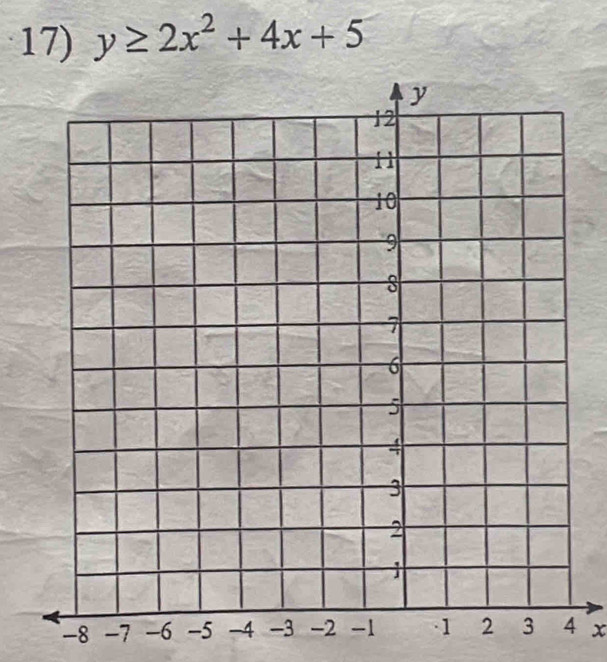 17) y ≥ 2x² + 4x + 5
y
12
11
10
9
8
7
6
5
4
3
2
1
-8 -7 -6 -5 -4 -3 -2 -1 1 2 3 4 x